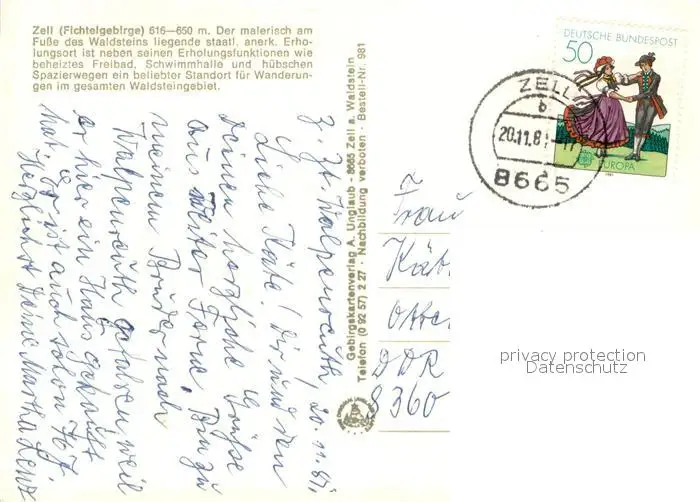 Zell (Fichtelgebirge) 616—650 m. Der malerisch am
Fuße des Waldsteins liegende staatl. anerk. Erho-
lungsort ist neben seinen Erholungsfunktionen wie
beheiztes Freibad, Schwimmhalle und hübschen
Spazierwegen ein beliebter Standort für Wanderun-
gen im gesamten Waldsteingebiet.
z. Zt. Walpenreuth, 20.11.81.
Liebe Käte! Dir und den
Deinen herzliche Grüße
aus weiter Ferne. Bin zu
meinem Bruder nach
Walpenreuth gefahren weil
er hier ein Haus gekauft
hat. Er ist auch schon 70 J.
Herzlichst Deine Martha Lenz
Gebirgskartenverlag A. Unglaub · 8665 Zell a. Waldstein
Telefon (0 92 57) 2 27 · Nachbildung verboten · Bestell-Nr. 981
DEUTSCHE BUNDESPOST
50
EUROPA
1981
ZELL
b
20.11.81
8665
Frau
Kät
DDR
8360
privacy protection
Datenschutz